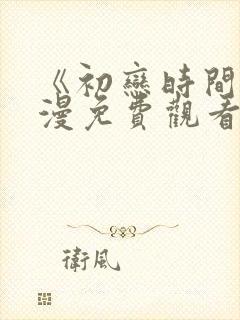 《初戀時間
漫免費觀看
衛風